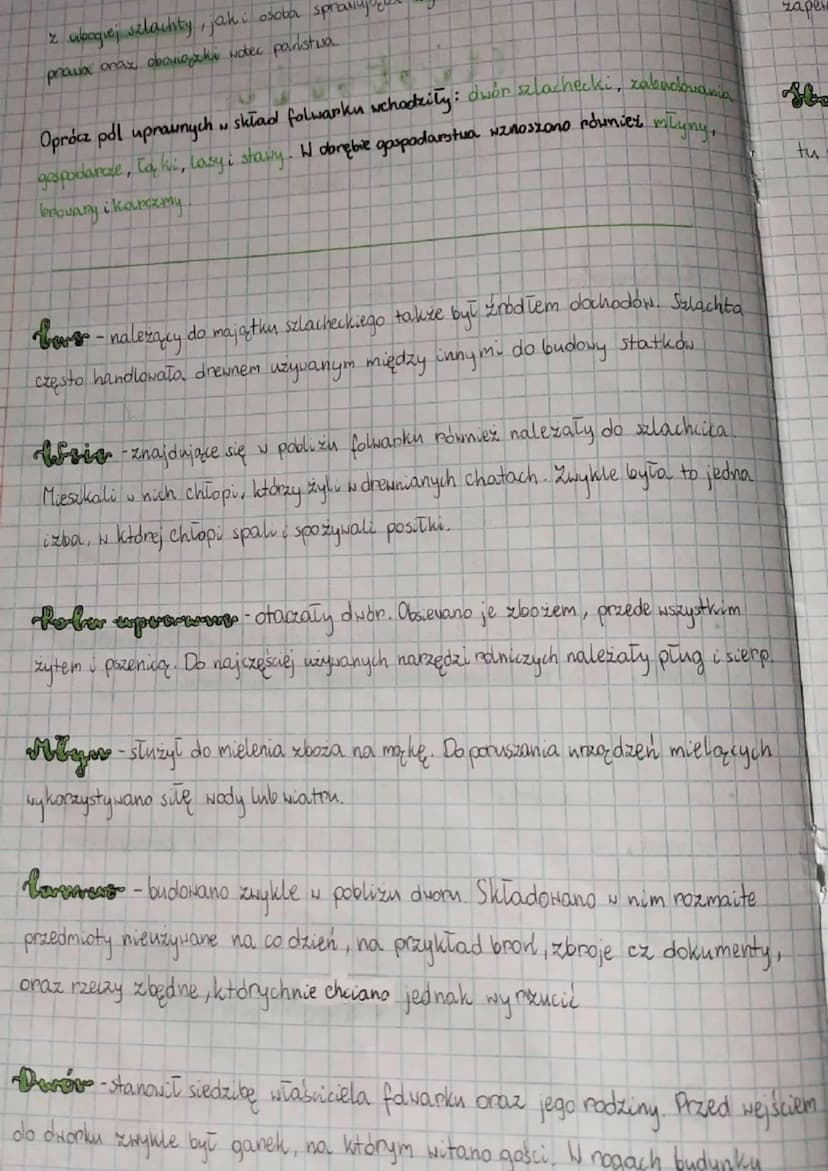 z ubogiej szlachty, jak i osoba
prawa oraz obowiązki wobec państwa.
zapew
Oprócz pól uprawnych w skład folwarku wchodziły: dwór szlachecki, zabudowania
gospodarcze, łąki, lasy i stawy. W obrębie gospodarstwa wznoszono również młyny,
tu
browary i karczmy.
Las - należący do majątku szlacheckiego także był źródłem dochodów. Szlachta
często handlowała drewnem używanym między innymi do budowy statków
Wsie - znajdujące się w pobliżu folwarku również należały do szlachcica.
Mieszkali w nich chłopi, którzy żyli w drewnianych chatach. Zwykle była to jedna
izba, w której chłopi spali i spożywali posiłki.
Pola uprawne - otaczały dwór. Obsiewano je zbożem, przede wszystkim
żytem i pszenicą. Do najczęściej używanych narzędzi rolniczych należały pług i sierp.
Młyn - służył do mielenia zboża na mąkę. Do poruszania urządzeń mielących
wykorzystywano siłę wody lub wiatru.
Lamus - budowano zwykle w pobliżu dworu. Składowano w nim rozmaite
przedmioty nieużywane na co dzień, na przykład broń, zbroje cz dokumenty,
oraz rzeczy zbędne, którychnie chciano jednak wyrzucić
Dwór - stanowił siedzibę właściciela folwarku oraz jego rodziny. Przed wejściem
do dworku zwykle był ganek, na którym witano gości. W rogach budynku